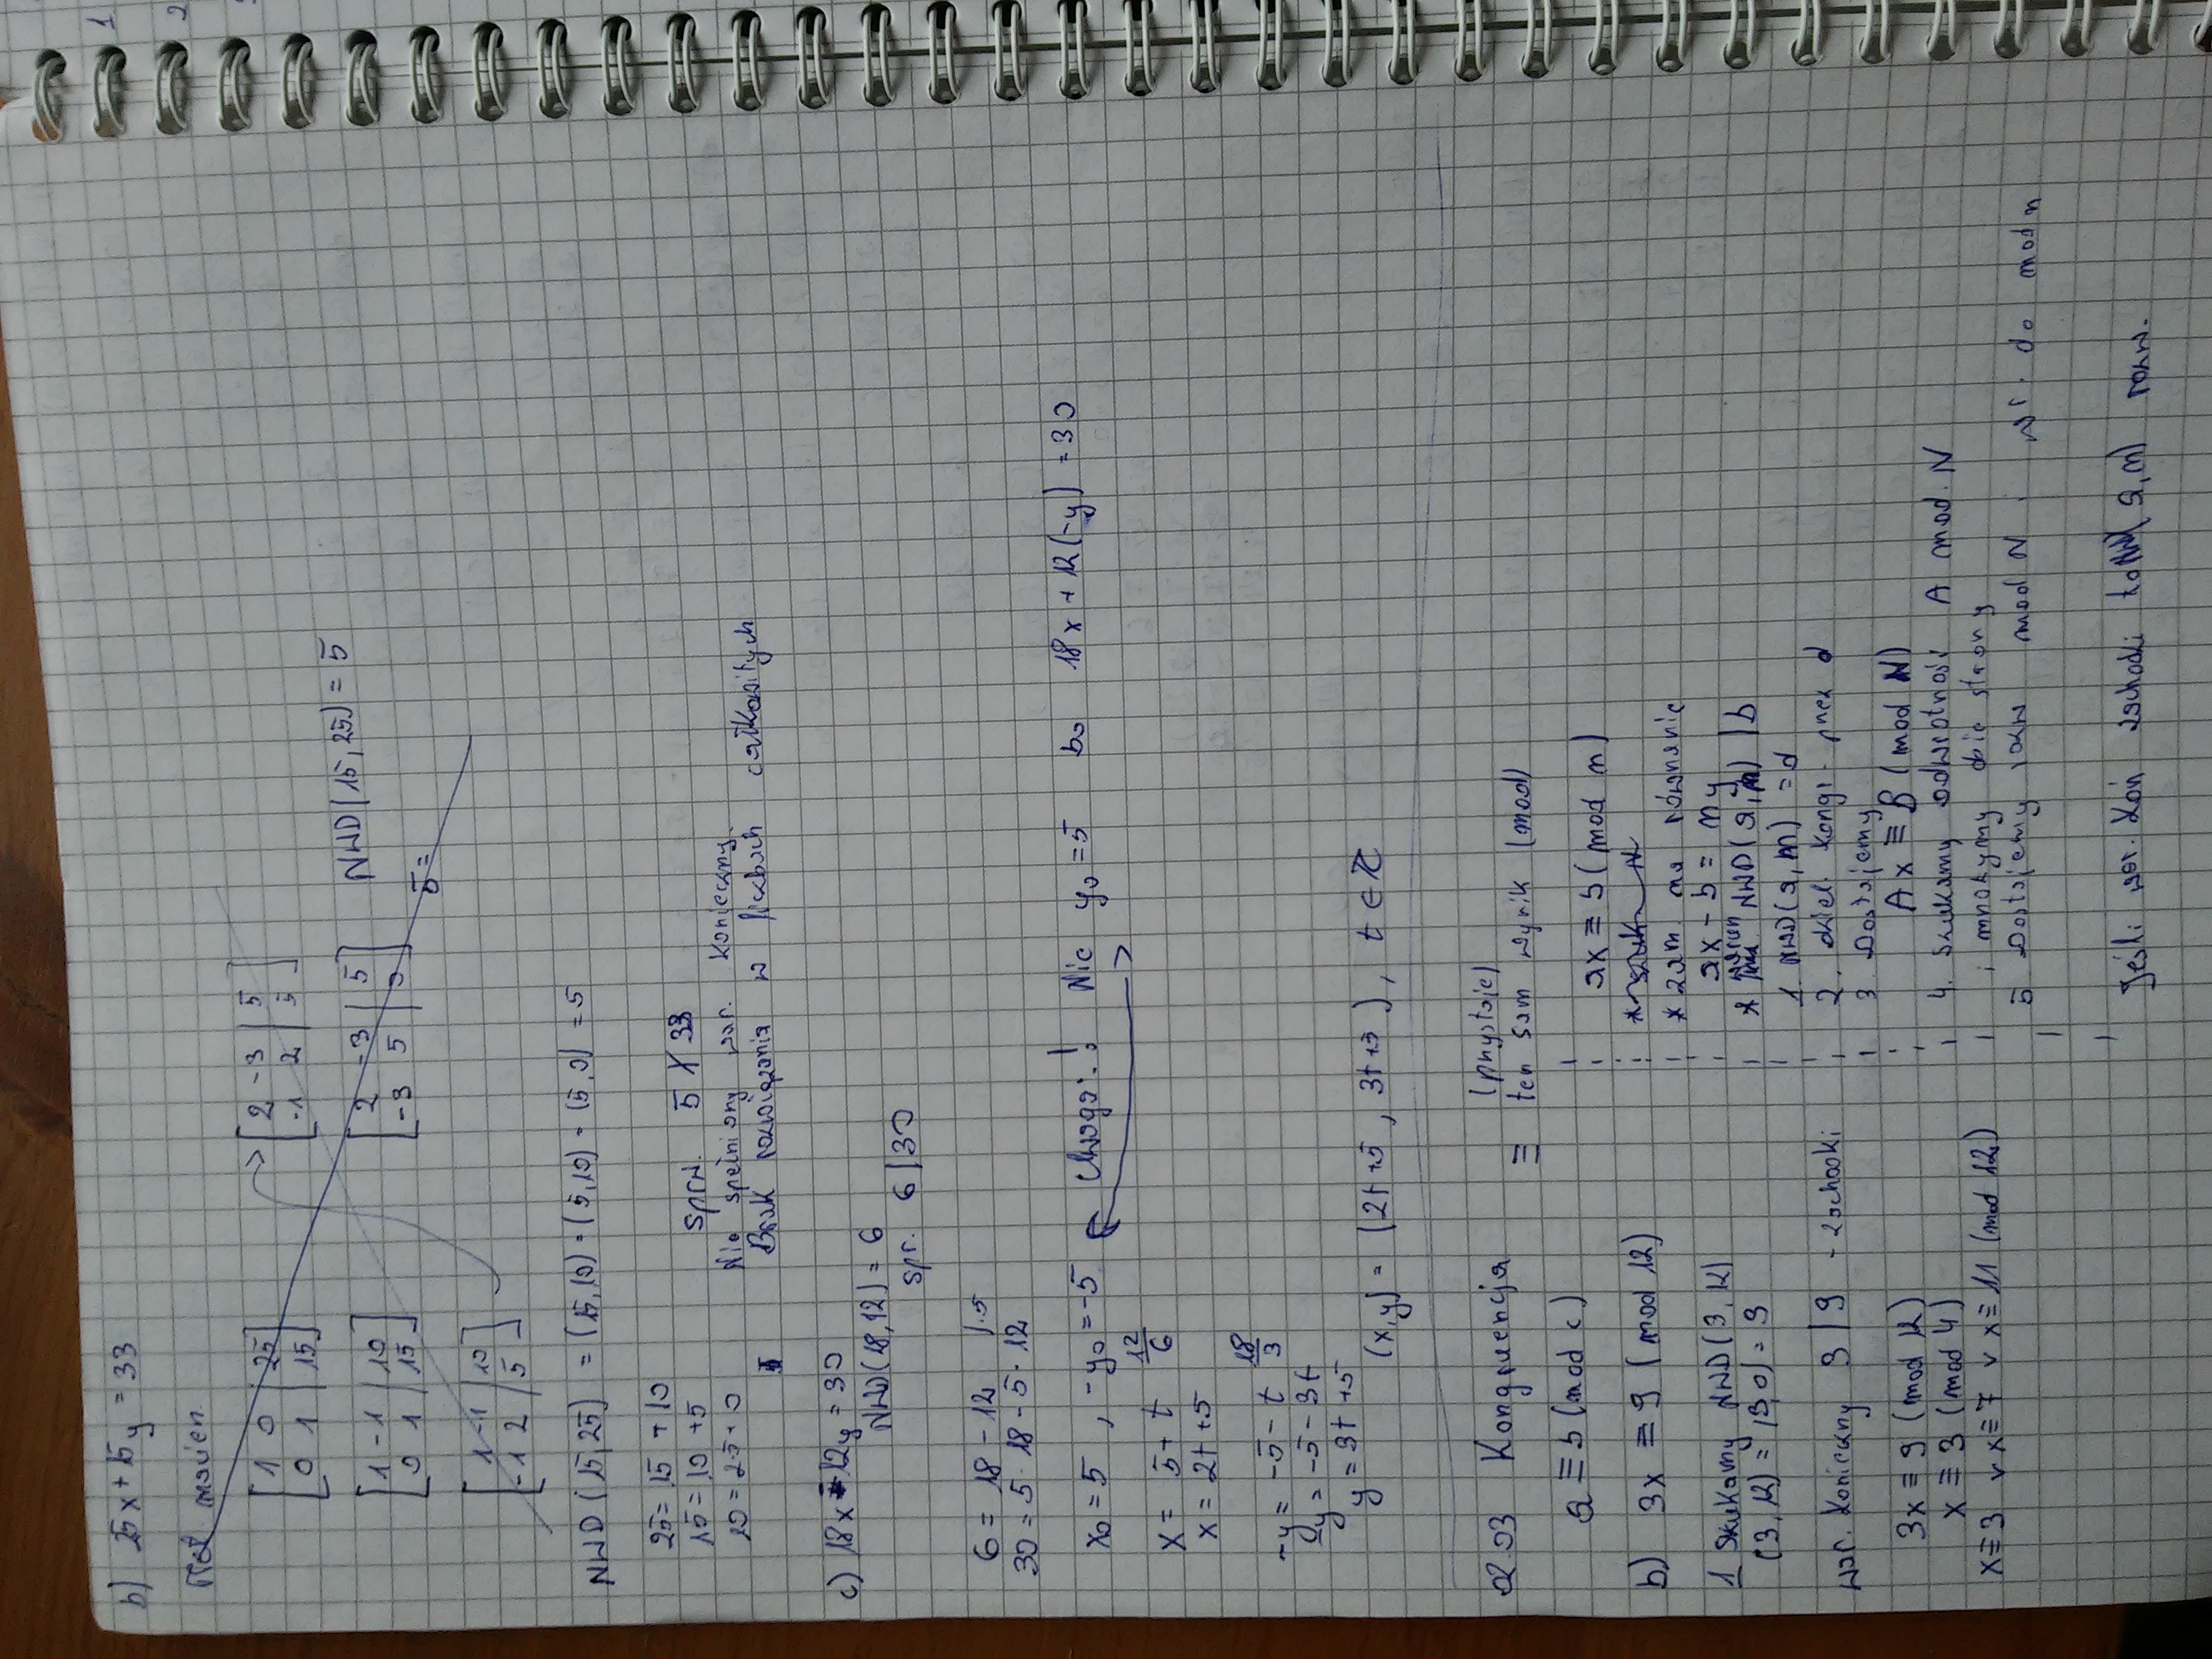 b) 25x + 15y = 33
macierz.
[1 0 | 25]
[0 1 | 15]
[1 -1 | 10]
[0 1 | 15]
[1 -1 | 10]
[-1 2 | 5]
[2 -3 | 5]
[-1 2 | 5]
[2 -3 | 5]
[-3 5 | 0]
NWD(15,25) = 5
5 =
NWD(15,25) = (15,10) = (5,10) = (5,0) = 5
25 = 15 + 10
15 = 10 + 5
10 = 2·5 + 0
sprw. 5 ∤ 33
Nie spełniony war. konieczny.
Brak rozwiązania w liczbach całkowitych
c) 18x - 12y = 30
NWD(18,12) = 6
spr. 6 | 30
6 = 18 - 12 /·5
30 = 5·18 - 5·12
x₀ = 5 , -y₀ = -5 Uwaga! Nie y₀ = 5 bo 18x + 12(-y) = 30
x = 5 + t 12/6
x = 2t + 5
-y = -5 - t 18/3
-y = -5 - 3t
y = 3t + 5
(x,y) = (2t + 5 , 3t + 5) , t ∈ Z
02.03 Kongruencja
≡ (przystaje)
ten sam wynik (mod)
a ≡ b (mod c)
b) 3x ≡ 9 (mod 12)
1 Szukamy NWD(3,12)
(3,12) = (3,0) = 3
war. konieczny 3 | 9 - zachodzi
3x ≡ 9 (mod 12)
x ≡ 3 (mod 4)
x ≡ 3 ∨ x ≡ 7 ∨ x ≡ 11 (mod 12)
ax ≡ b (mod n)
* szuk N
* zam. na równanie
ax - b = ny
* warun NWD(a,n) | b
1. NWD(a,n) = d
2. dziel. kongr. przez d
3. Dostajemy
Ax ≡ B (mod N)
4. Szukamy odwrotność A mod. N
i mnożymy obie strony
5 Dostajemy rozw mod N i wr. do mod n
Jeśli war. kon zachodzi to NWD(a,n) rozw.
1
2